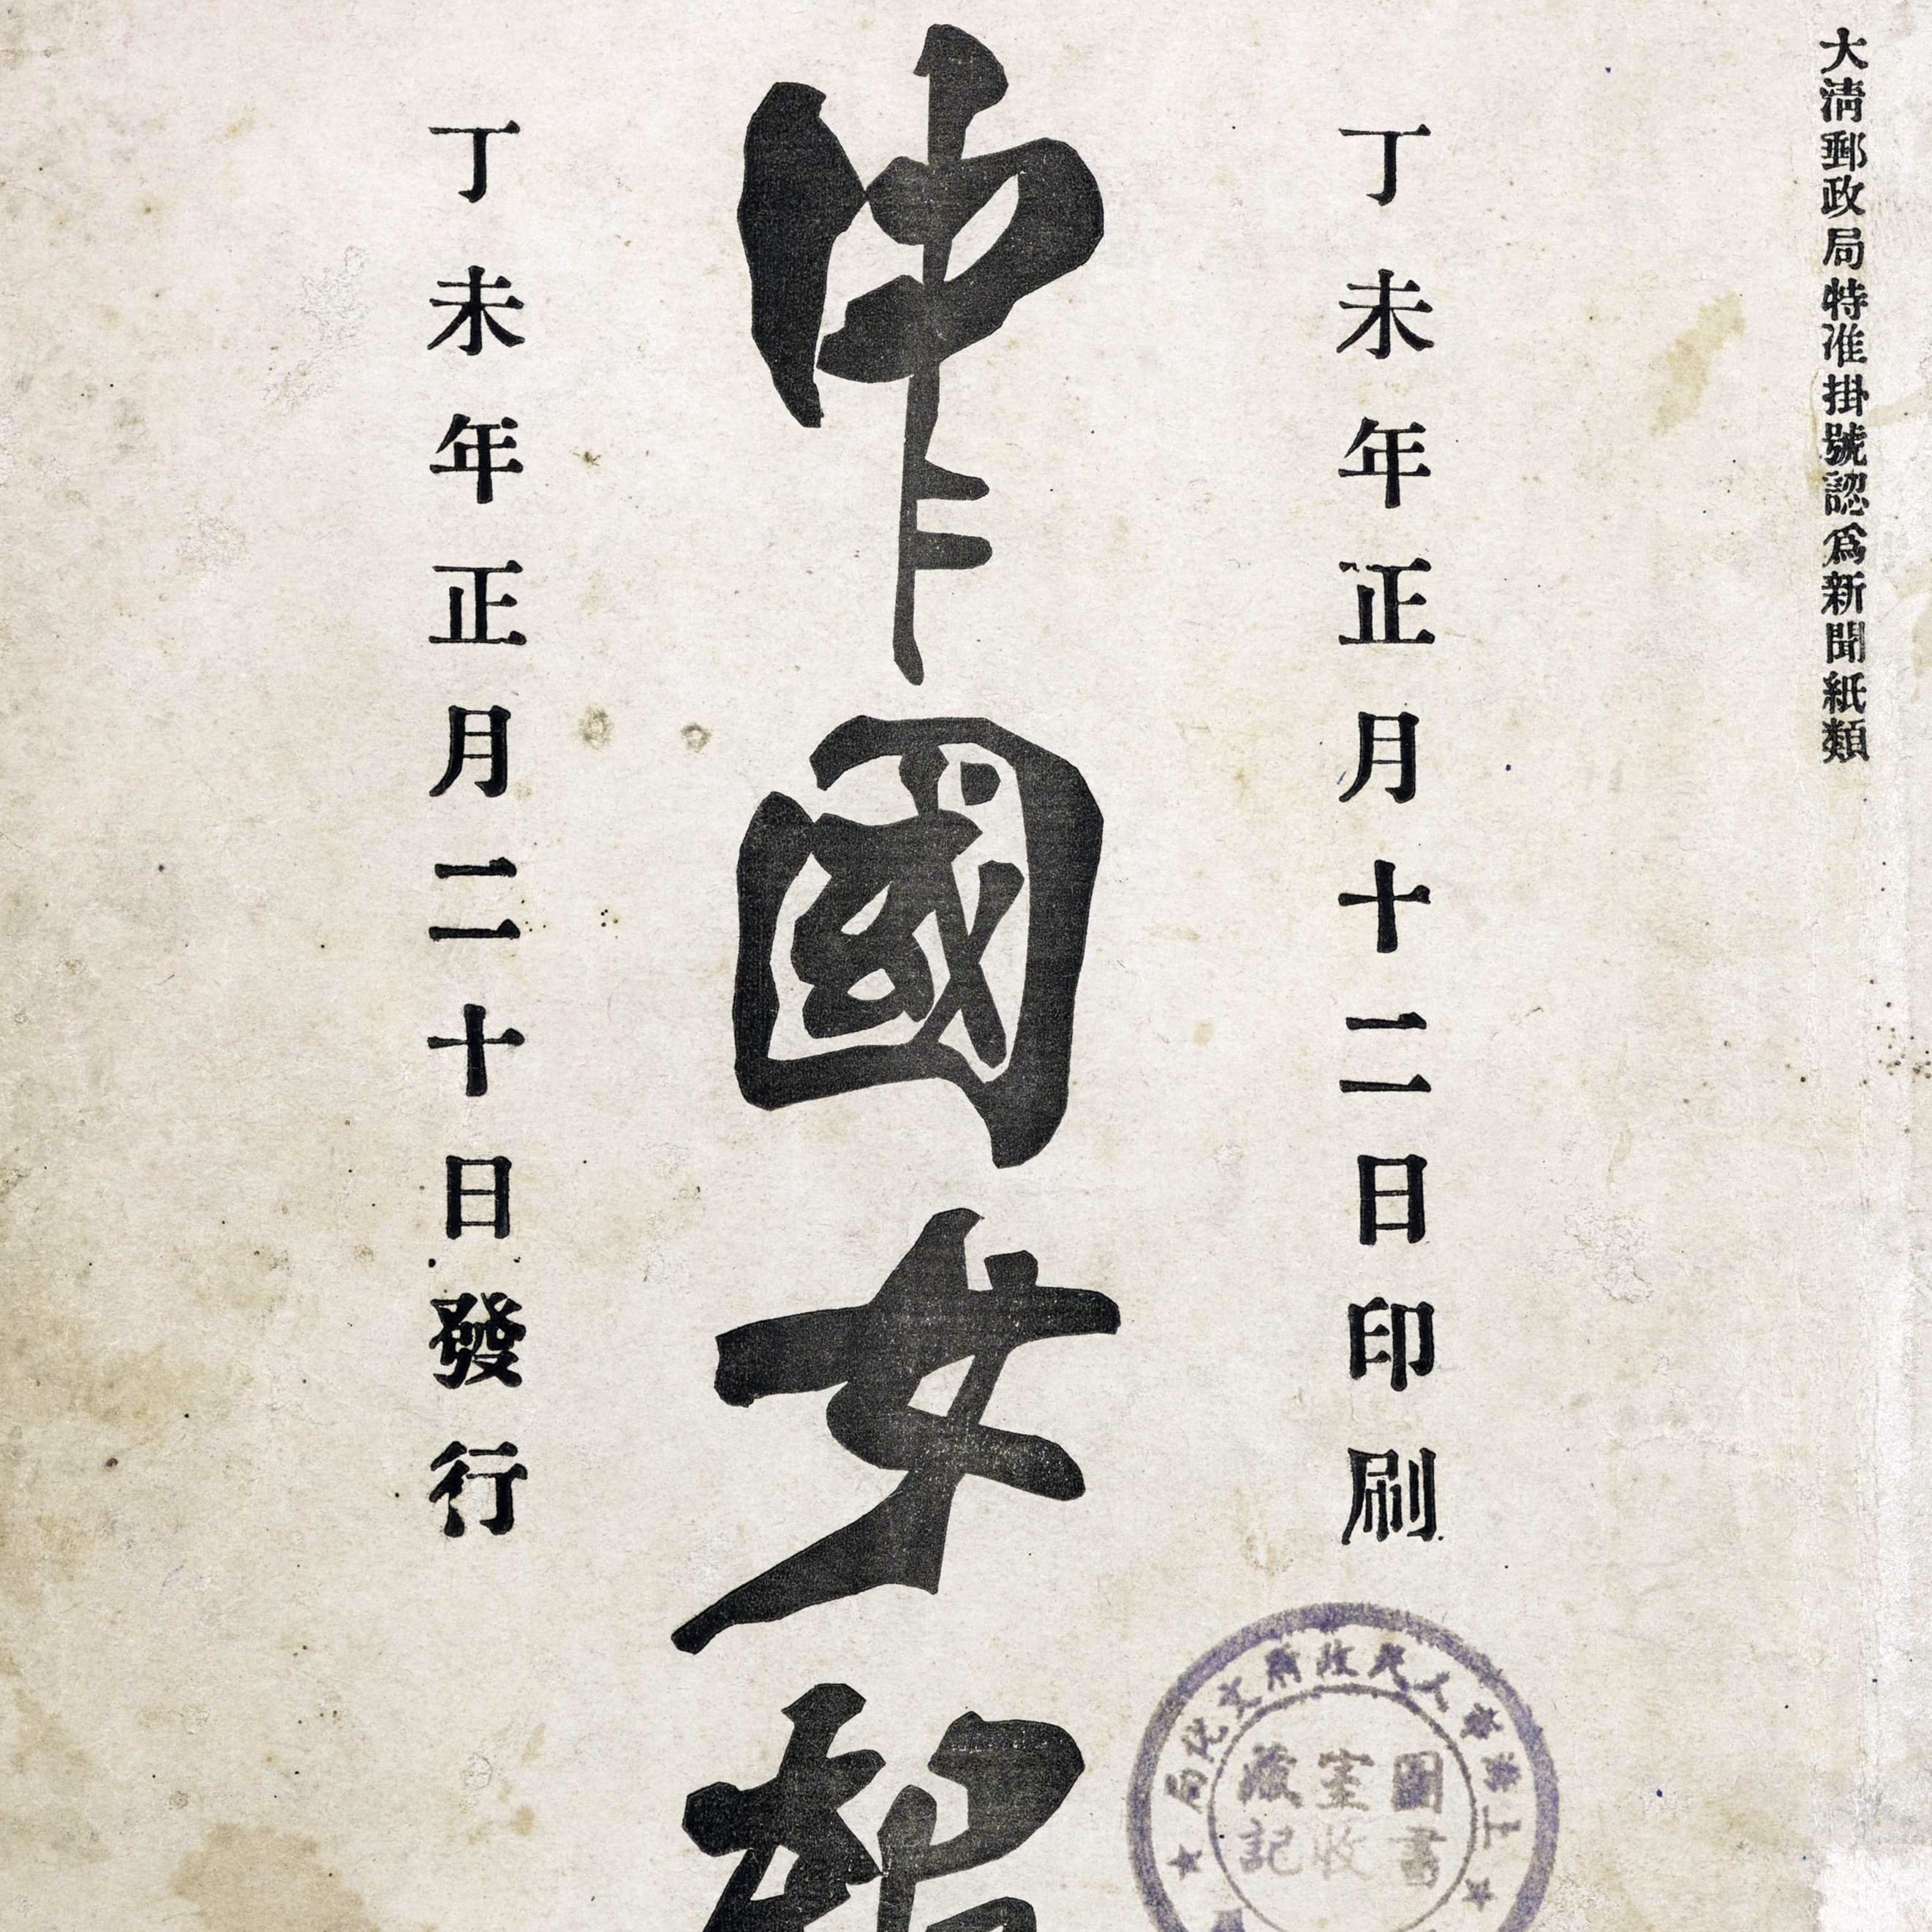 大清郵政局特准掛號認爲新聞紙類
丁未年正月十二日印刷
中國女報
丁未年正月二十日發行
上海市人民政府文化局
圖書
室收
藏記